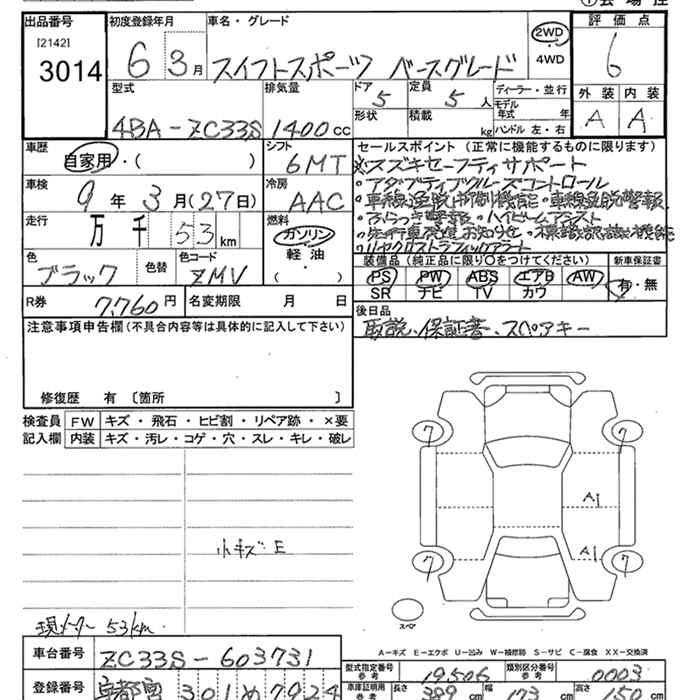 出品番号 初度登録年月 車名・グレード 評価点
[2142]
3014 6 3月 スイフトスポーツ ベースグレード 2WD 4WD 6
型式 排気量 ドア 定員 ディーラー・並行 外装 内装
4BA-ZC33S 1400cc 5 5人 モデル年式 年 A A
形状 積載 kg ハンドル 左・右
車歴 シフト セールスポイント (正常に機能するものに限ります)
自家用・( ) 6MT ※スズキセーフティサポート
車検 冷房 ・アダプティブクルーズコントロール
9年3月(27日) AAC ・車線逸脱抑制機能・車線逸脱警報
走行 燃料 ・ふらつき警報・ハイビームアシスト
万 千 53km ガソリン ・先行車発進お知らせ・標識認識機能
軽油 ・リヤクロストラフィックアラート
色 色替 色コード ( 装備品(純正品に限り○をつけてください) 新車保証書
ブラック ZMV PS PW ABS エアB AW 有・無
SR ナビ TV カワ
R券 7,760円 名変期限 月 日 後日品
注意事項申告欄(不具合内容等は具体的に記入して下さい) 取説、保証書、スペアキー
修復歴 有〔箇所 〕
検査員 FW キズ・飛石・ヒビ割・リペア跡・×要
記入欄 内装 キズ・汚レ・コゲ・穴・スレ・キレ・破レ
7 7
A1
小キズ E A1
7 7
スペア
現メーター 53km
A-キズ E-エクボ U-凹み W-補修跡 S-サビ C-腐食 XX-交換済
車台番号 ZC33S-603731
型式指定番号 参考 19506 類別区分番号 参考 0003
登録番号 宇都宮 301 め 7924
車庫証明用 参考 長さ 389cm 幅 173cm 高さ 150cm